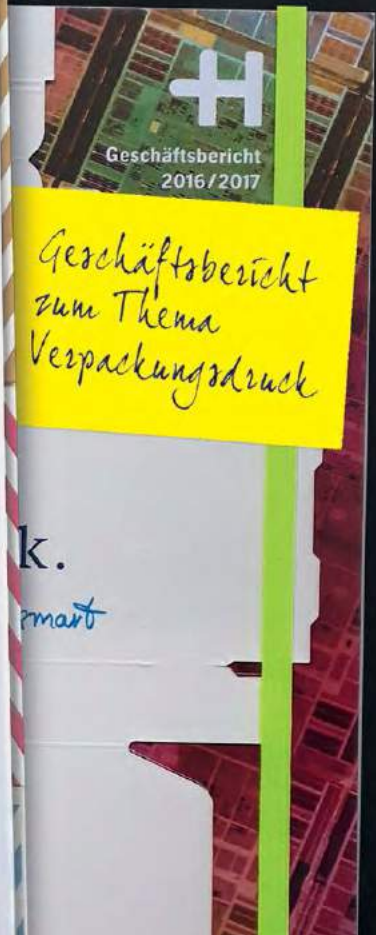 Geschäftsbericht
2016/2017
Geschäftsbericht
zum Thema
Verpackungsdruck
k.
smart